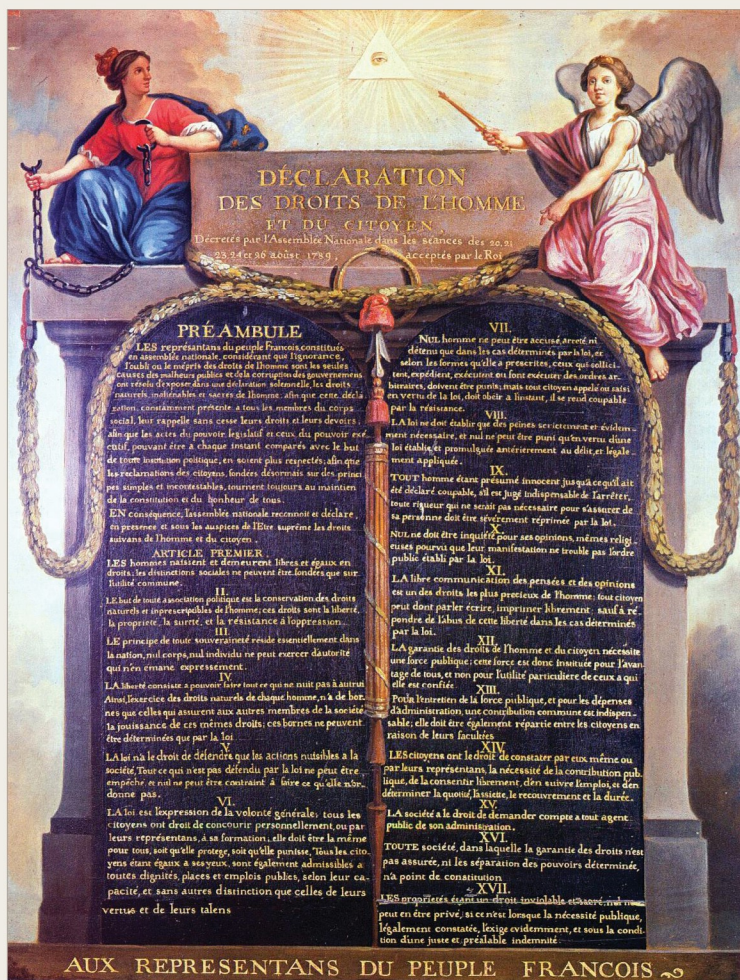 DÉCLARATION
DES DROITS DE L'HOMME
ET DU CITOYEN,
Décretés par l'Assemblée Nationale dans les séances des 20, 21
23, 24 et 26 aoûst 1789, acceptés par le Roi
PRÉAMBULE
LES représentans du peuple François, constitués
en assemblée nationale, considérant que l'ignorance,
l'oubli ou le mépris des droits de l'homme sont les seules
causes des malheurs publics et de la corruption des gouvernemens
ont résolu d'exposer dans une déclaration solemnelle, les droits
naturels, inaliénables et sacrés de l'homme; afin que cette décla
ration, constamment présente a tous les membres du corps
social, leur rappelle sans cesse leurs droits et leurs devoirs,
afin que les actes du pouvoir législatif et ceux du pouvoir exé
cutif, pouvant être a chaque instant comparés avec le but
de toute institution politique, en soient plus respectés; afin que
les reclamations des citoyens, fondées désormais sur des princi
pes simples et incontestables, tournent toujours au maintien
de la constitution et du bonheur de tous.
EN conséquence, l'assemblée nationale reconnoit et déclare,
en presence et sous les auspices de l'Etre suprême les droits
suivans de l'homme et du citoyen.
ARTICLE PREMIER.
LES hommes naissent et demeurent libres et égaux en
droits; les distinctions sociales ne peuvent être fondées que sur
l'utilité commune.
II.
LE but de toute association politique est la conservation des droits
naturels et inprescriptibles de l'homme; ces droits sont la liberté,
la proprieté, la sureté, et la résistance à l'oppression.
III.
LE principe de toute souveraineté réside essentiellement dans
la nation, nul corps, nul individu ne peut exercer d'autorité
qui n'en émane expressement.
IV.
LA liberté consiste a pouvoir faire tout ce qui ne nuit pas à autrui
Ainsi, l'exercice des droits naturels de chaque homme, n'a de bor
nes que celles qui assurent aux autres membres de la société
la jouissance de ces mêmes droits; ces bornes ne peuvent
être déterminées que par la loi.
V.
LA loi n'a le droit de défendre que les actions nuisibles a la
société. Tout ce qui n'est pas défendu par la loi ne peut être
empêché, et nul ne peut être contraint à faire ce qu'elle n'or-
donne pas.
VI.
LA loi est l'expression de la volonté générale; tous les
citoyens ont droit de concourir personnellement, ou par
leurs représentans, à sa formation; elle doit être la même
pour tous, soit qu'elle protege, soit qu'elle punisse, Tous les cito
yens étant égaux a ses yeux, sont également admissibles a
toutes dignités, places et emplois publics, selon leur ca-
pacité, et sans autres distinction que celles de leurs
vertus et de leurs talens
VII.
NUL homme ne peut être accusé, arreté ni
détenu que dans les cas déterminés par la loi, et
selon les formes qu'elle a prescrites, ceux qui sollici-
tent, expédient, exécutent ou font exécuter des ordres ar-
bitraires, doivent être punis; mais tout citoyen appelé ou saisi
en vertu de la loi, doit obéir a l'instant, il se rend coupable
par la résistance.
VIII.
LA loi ne doit établir que des peines strictement et évidem-
ment nécessaire, et nul ne peut être puni qu'en vertu d'une
loi établie et promulguée antérierement au délit, et légale-
ment appliquée.
IX.
TOUT homme étant présumé innocent jusqu'a ce qu'il ait
été déclaré coupable, s'il est jugé indispensable de l'arrêter,
toute rigueur qui ne serait pas nécessaire pour s'assurer de
sa personne doit être sévèrement réprimée par la loi.
X.
NUL ne doit être inquiété pour ses opinions, mêmes religi-
euses pourvu que leur manifestation ne trouble pas l'ordre
public établi par la loi.
XI.
LA libre communication des pensées et des opinions
est un des droits les plus precieux de l'homme; tout citoyen
peut dont parler écrire, imprimer librement; sauf à ré-
pondre de l'abus de cette liberté dans les cas déterminés
par la loi.
XII.
LA garantie des droits de l'homme et du citoyen nécessite
une force publique; cette force est donc instituée pour l'avan-
tage de tous, et non pour l'utilité particuliere de ceux a qui
elle est confiée.
XIII.
Pour l'entretien de la force publique, et pour les dépenses
d'administration, une contribution commune est indispen-
sable; elle doit être également répartie entre les citoyens en
raison de leurs facultées
XIV.
LES citoyens ont le droit de constater par eux même ou
par leurs représentans, la nécessité de la contribution pub-
lique, de la consentir librement, d'en suivre l'emploi, et d'en
déterminer la quotité, l'assiette, le recouvrement et la durée.
XV.
LA société a le droit de demander compte a tout agent
public de son administration.
XVI.
TOUTE société, dans laquelle la garantie des droits n'est
pas assurée, ni les séparation des pouvoirs déterminée,
n'a point de constitution
XVII.
LES proprietés étant un droit inviolable et sacré, nul ne
peut en être privé, si ce n'est lorsque la nécessité publique,
légalement constatée, l'exige evidemment, et sous la condi-
tion d'une juste et préalable indemnité.
AUX REPRESENTANS DU PEUPLE FRANCOIS